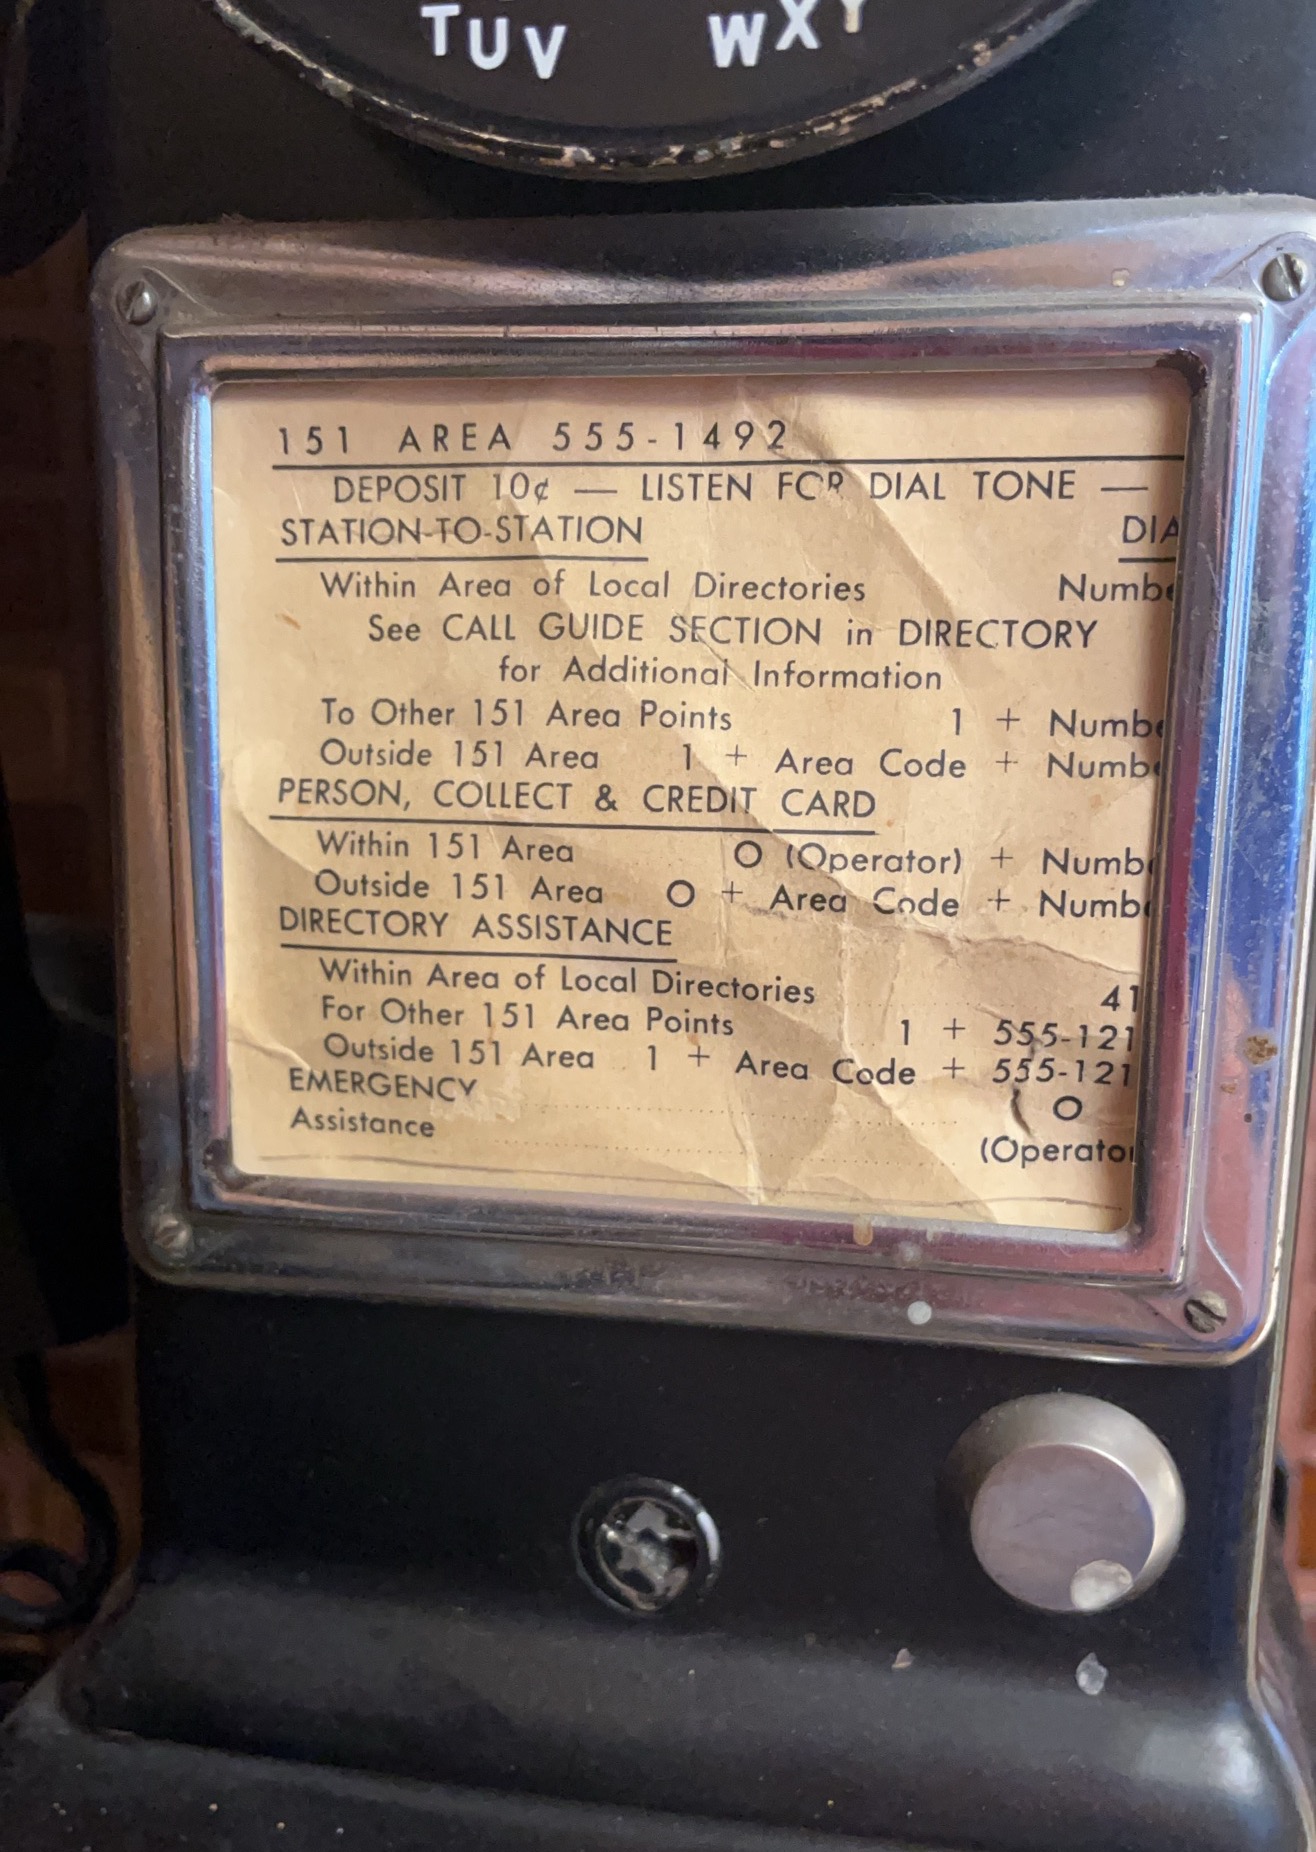 TUV WXY
151 AREA 555-1492
DEPOSIT 10¢ — LISTEN FOR DIAL TONE —
STATION-TO-STATION DIA
Within Area of Local Directories Numbe
See CALL GUIDE SECTION in DIRECTORY
for Additional Information
To Other 151 Area Points 1 + Numbe
Outside 151 Area 1 + Area Code + Numbe
PERSON, COLLECT & CREDIT CARD
Within 151 Area O (Operator) + Numbe
Outside 151 Area O + Area Code + Numbe
DIRECTORY ASSISTANCE
Within Area of Local Directories 41
For Other 151 Area Points 1 + 555-121
Outside 151 Area 1 + Area Code + 555-121
EMERGENCY O
Assistance (Operator